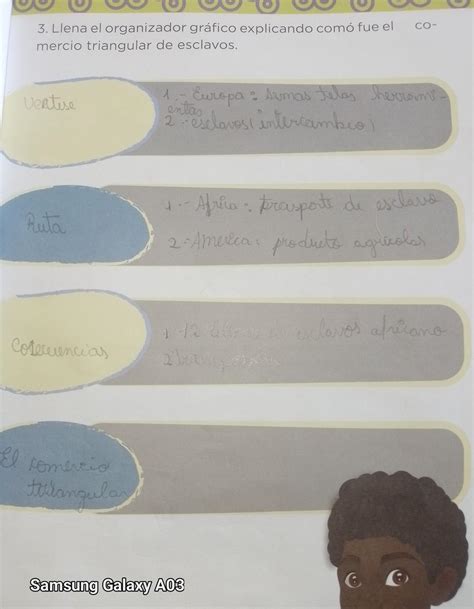 3. Llena el organizador gráfico explicando comó fue el co-
mercio triangular de esclavos.
Vertise
1.- Europa: armas telas herrami-
entas
2.- esclavos (intercambio)
Ruta
1.- Africa: transporte de esclavo
2-America: producto agricolas
Cosecuencias
1-12 esclavos africano
2
El comercio
triangular
Samsung Galaxy A03